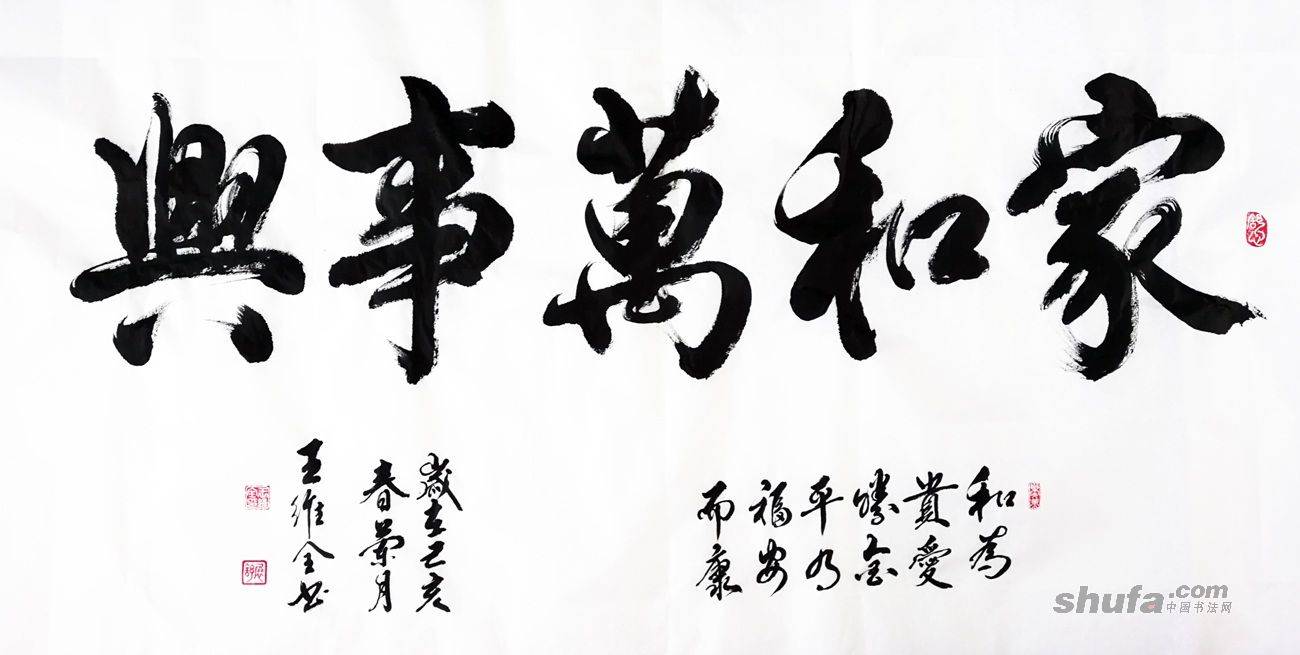 家和萬事興
和為
貴愛
勝金
平為
福安
而康
歲在己亥
春蘭月
王維全書
shufa.com
中国书法网